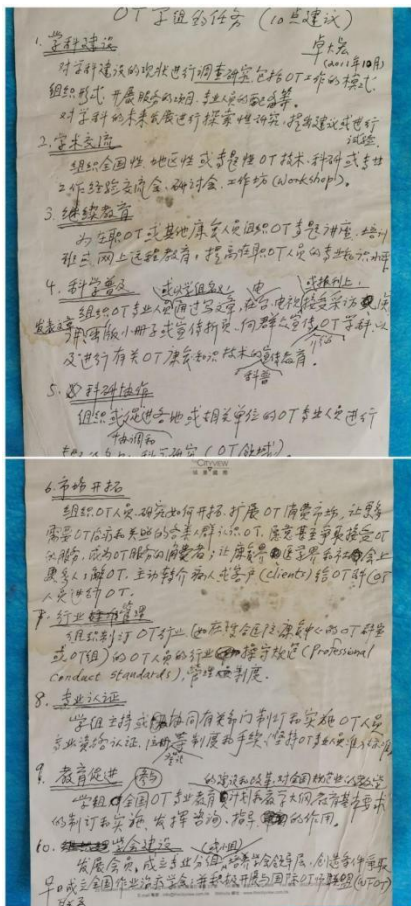 OT学组的任务（10点建议）
卓大宏
(2011年10月)
1. 学科建设
对学科建设的现状进行调查研究包括OT工作的模式
组织形式、开展服务的项目、专业人员的配备等。
对学科的未来发展进行探索性研究，提出建议或进行
试验.
2. 学术交流
组织全国性、地区性或专题性OT技术、科研或专业
工作经验交流会、研讨会、工作坊(workshop)。
3. 继续教育
为在职OT或其他康复人员组织OT专题讲座、培训
班或网上远程教育，提高在职OT人员的专业知识水平
4. 科学普及
或以学组名义 或报刊上
组织OT专业人员通过写文章，电台、电视接受采访
发表文章 出版小册子或宣传折页，向群众宣传OT学科，以
及进行有关OT康复知识技术的宣传教育。
科普
5. 科研协作
组织或促进各地或相关单位的OT专业人员进行
协调和
科学研究（OT领域）。
CITYVIEW
6. 市场开拓
组织OT人员，研究如何开拓、扩展OT消费市场，让更多
需要OT治疗和失能的各类人群认识OT，愿意甚至争取接受OT
服务，成为OT服务的消费者；让康复界医学界和社会上
更多人了解OT，主动转介病人或客户(clients)给OT科(OT
人员进行OT.
7. 行业管理
组织制订OT行业(如在综合医院康复中心的OT科室
或OT组)的OT人员的行业操守规范(Professional
conduct standards)，管理制度.
8. 专业认证
学组主持或协同有关部门制订和实施OT人员
专业资格认证，注册等制度和手续，坚持OT专业人员准入标准
考试
9. 教育促进
参与 的建设和改革，对全国
学组全国OT专业教育计划和教学大纲教育基本要求
的制订和实施，发挥咨询、指导的作用。
10. 学会建设
(或小组)
发展会员，成立专业分组，培养学会领导层，创造条件争取
早日成立全国作业治疗学会，并积极开展与国际OT联盟(WFOT)